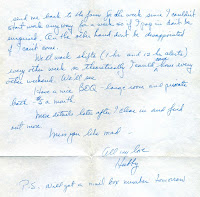 send me back to the farm for the week since I couldn't
start work anyway for a week so if I pay in don't be
surprised. On the other hand don't be disappointed
if I don't come.
We'll work shifts (1 hr and is be alerts)
every other week so theoretically I could have every
other weekend. We'll see.
Have a nice BOQ - large room and private
bath $ a month
More details later after I clean in and find
out more.
Miss you like mad.
All my love
Hubby
P.S. Will get a mail box number tomorrow